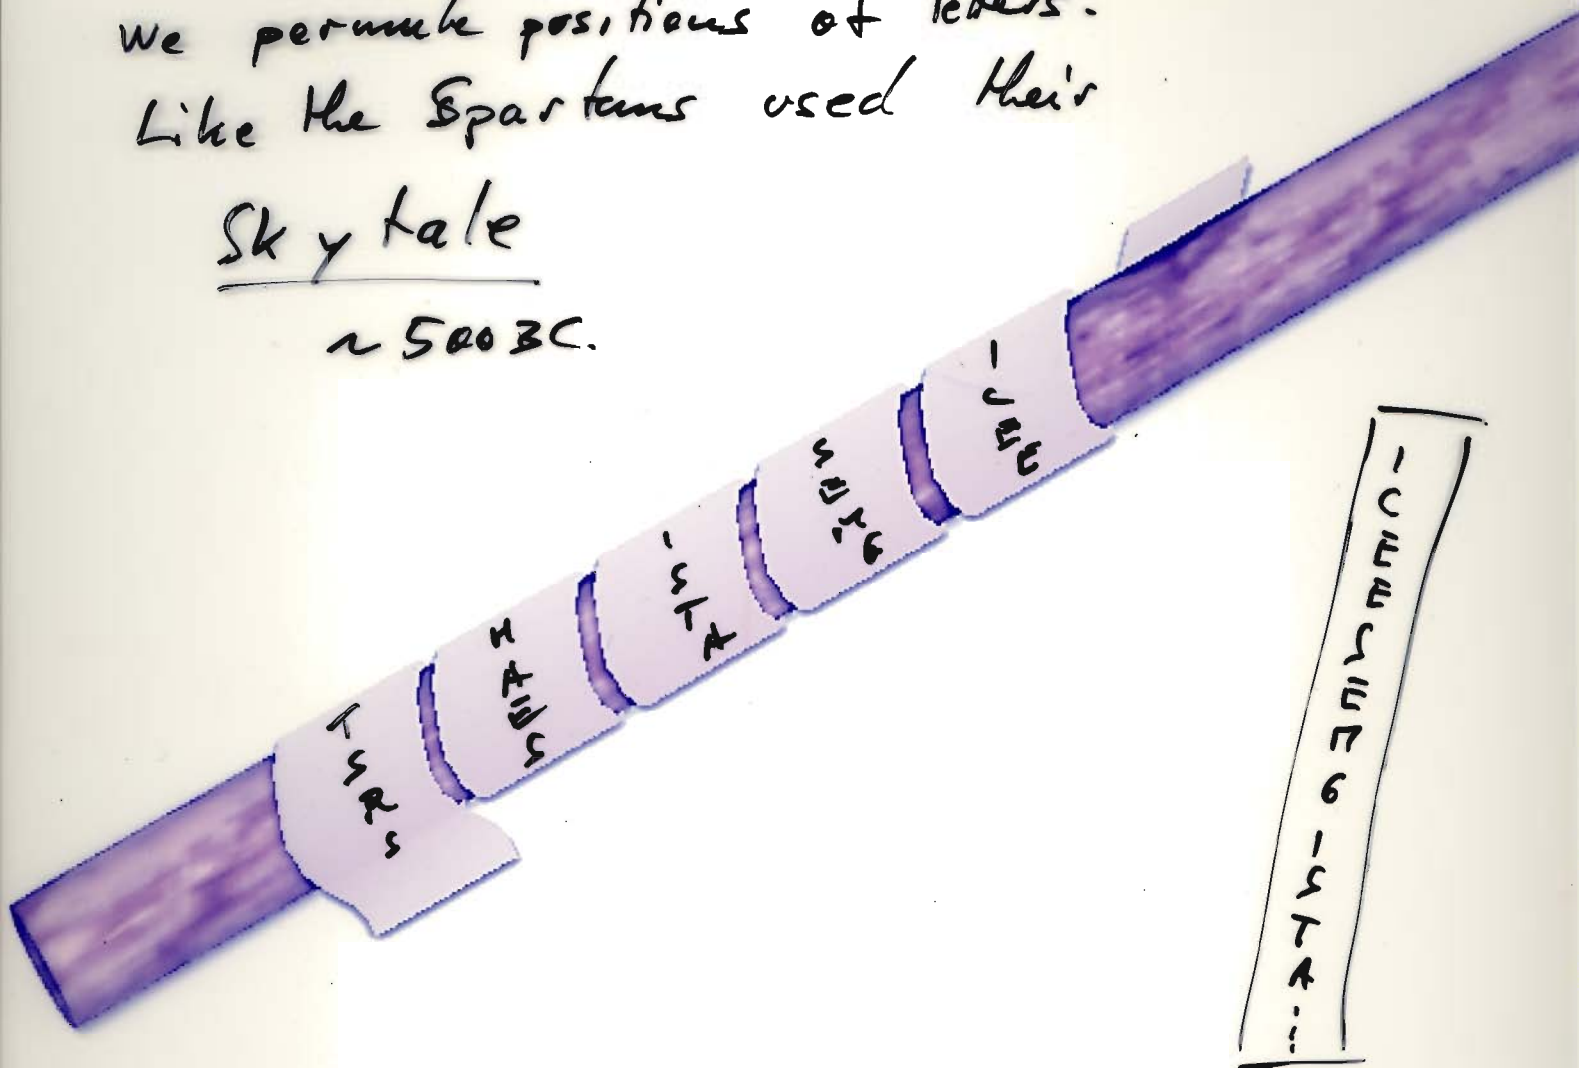 We permute positions of letters.
Like the Spartans used their
Skytale
~ 500 BC.
TSRS
HAES
ISTA
SEMG
ICEE
ICEESEMGISTA...